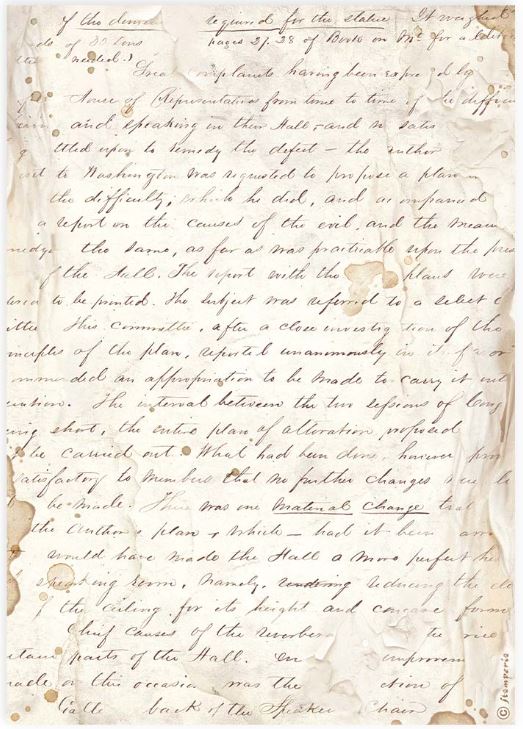 of the required for the statue It weighed
of 30 tons pages 27.28 of Book on for a
needed.)
Great complaints having been expressed by
House of Representatives from time to time of the difficul
and speaking in their Hall, and no satis
ttled upon to remedy the defect – the author
to Washington was requested to propose a plan
the difficulty, which he did, and accompanied
a report on the causes of the evil, and the means
the same, as far as was practicable upon the pres
of the Hall. The report with the plans were
to be printed. The subject was referred to a select c
ittee This committee, after a close investigation of the
inciples of the plan, reported unanimously in its favor
ommended an appropriation to be made to carry it into
cution. The interval between the two sessions of Cong
eing short, the entire plan of alteration proposed
be carried out. What had been done, however
satisfactory to Members that no further changes were to
be made. There was one Material Change that
the author's plan, which – had it been
would have made the Hall a more perfect
speaking room, namely, rendering reducing the
of the ceiling for its height and concave form
Chief causes of the reverbera the
parts of the Hall. improvem
made on this occasion was the of
back of the Speaker Chair
© Stamperia